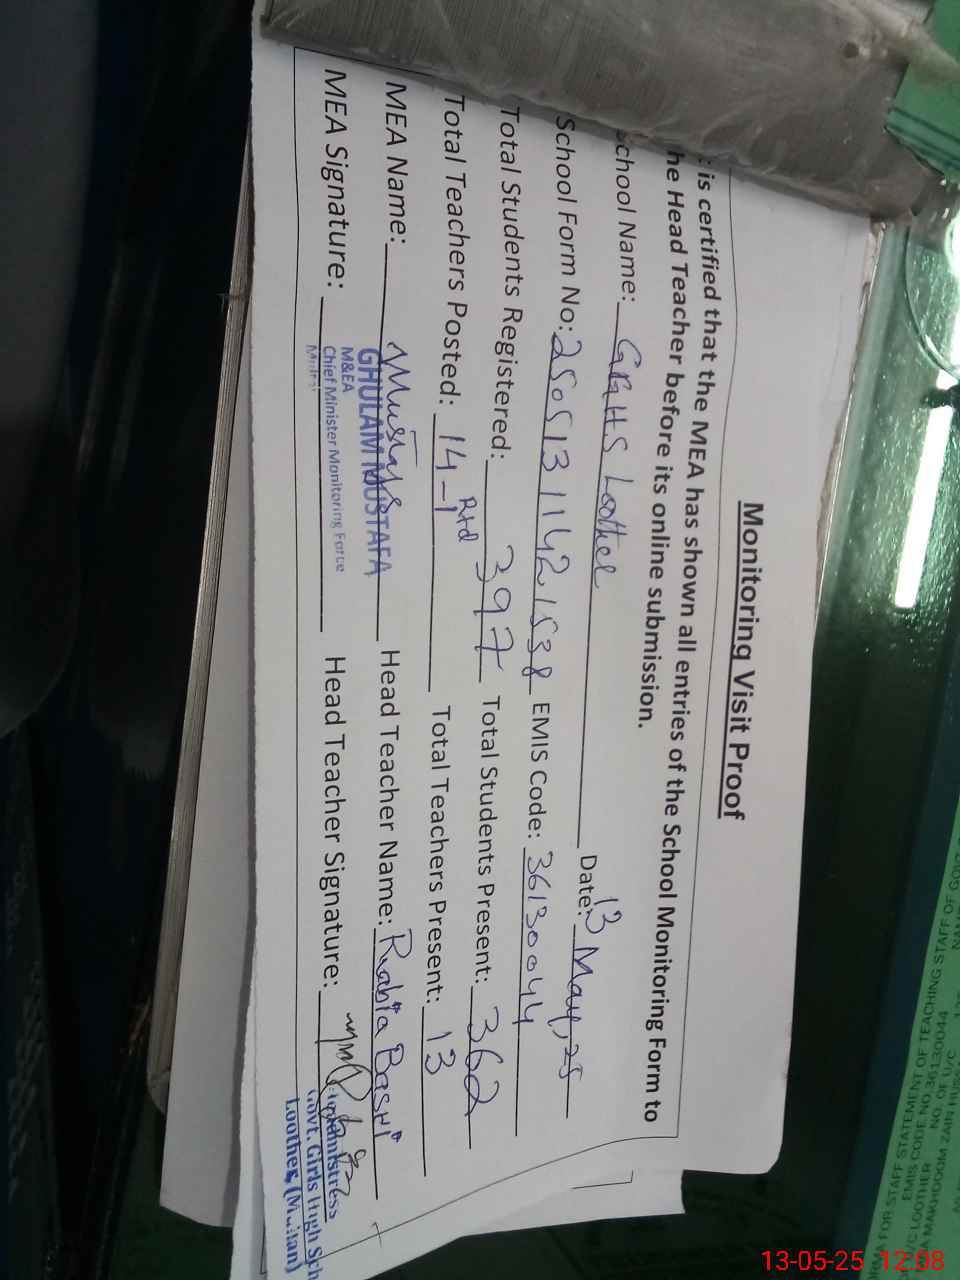 Monitoring Visit Proof
is certified that the MEA has shown all entries of the School Monitoring Form to
he Head Teacher before its online submission.
chool Name: GGHS Loother Date: 13 May, 25
School Form No: 25051311421538 EMIS Code: 36130044
Total Students Registered: 397 Total Students Present: 362
Total Teachers Posted: 14-1 Rtd Total Teachers Present: 13
MEA Name: Mustafa Head Teacher Name: Rabia Basri
GHULAM MUSTAFA
M&EA
Chief Minister Monitoring Force
MEA Signature: Head Teacher Signature:
Govt. Girls High Sch
Loother, (Multan)
STAFF STATEMENT OF TEACHING STAFF OF
EMIS CODE NO.36130044
NO. OF U/C
LOOTHER
MAKHDOOM
13-05-25 12:08